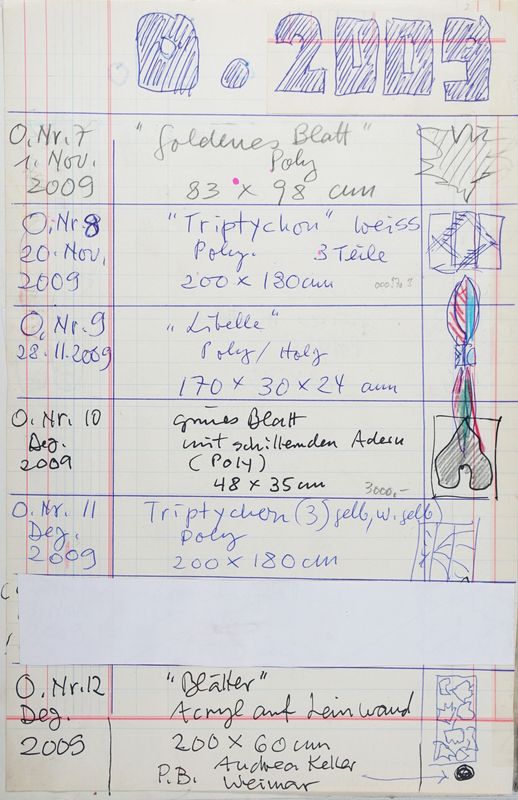 O. 2009
O. Nr. 7 "Goldenes Blatt"
1. Nov. Poly
2009 83 x 98 cm
O. Nr. 8 "Triptychon" weiss
20. Nov. Poly. 3 Teile
2009 200 x 180 cm
O. Nr. 9 "Libelle"
28.11.2009 Poly/Holz
170 x 30 x 24 cm
O. Nr. 10 grünes Blatt
Dez. mit schillernden Adern
2009 (Poly)
48 x 35 cm 3000,-
O. Nr. 11 Triptychon (3) gelb, w. gelb
Dez. Poly
2009 200 x 180 cm
O. Nr. 12 "Blätter"
Dez. Acryl auf Leinwand
2009 200 x 60 cm
P.B. Andrea Keller
Weimar